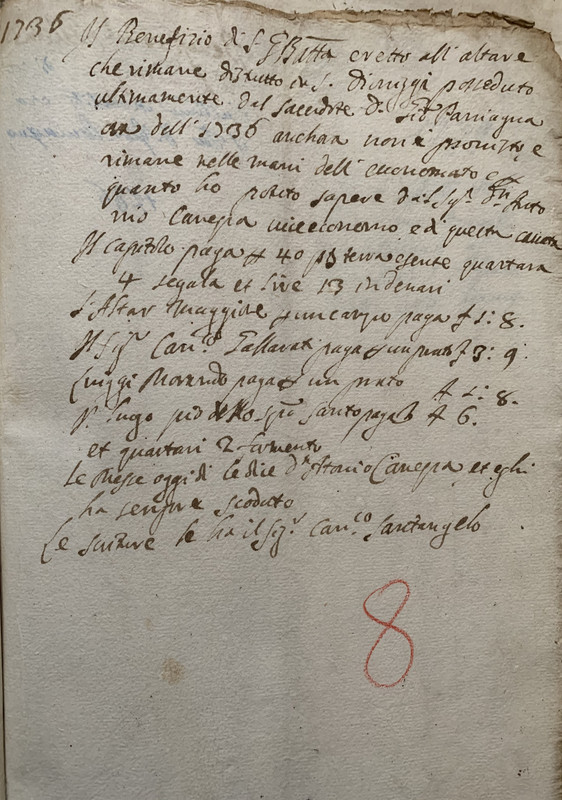 1736
Il Benefizio di S. G Batta eretto all' altare
che rimane distrutto in S. Dionigi posseduto
ultimamente dal sacerdote D. Gio Parriagna
dell' 1736 anchora non è provisto, e
rimane nelle mani dell' economato e p
quanto ho potuto sapere dal Sig.r D.n Anto
nio Canepra viceeconomo ed questa
Il capitolo paga £ 40 p terra esente quartara
4 segala et lire 13 in denari
L'Altar Maggiore p un campo paga £ 1: 8.
Il Sig.r Can.co Gallarati paga p un prato £ 3: 9.
Luiggi Morando paga p un prato £ 1: 8.
Il luogo pio dello Spto Santo paga £ 6.
et quartari 2 formento
Le Messe oggidi le dice D.n Antonio Canepra et egli
ha sempre scoduto
Le scritture le ha il Sig.r Can.co Santangelo
8